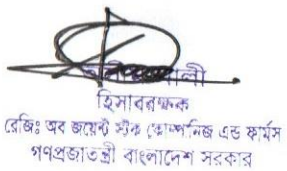 হিসাবরক্ষক
রেজিঃ অব জয়েন্ট স্টক কোম্পানিজ এন্ড ফার্মস
গণপ্রজাতন্ত্রী বাংলাদেশ সরকার